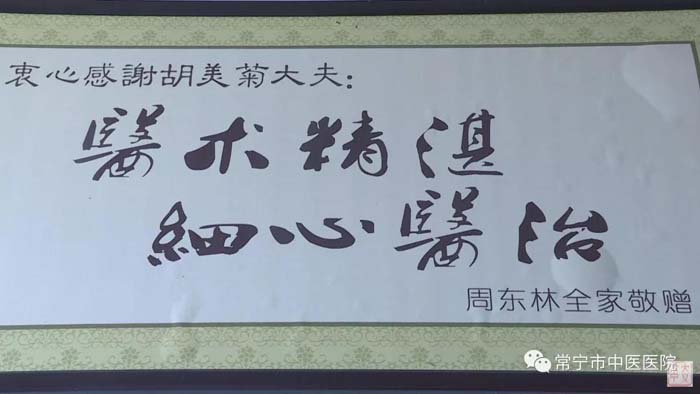 衷心感謝胡美菊大夫：
醫术精湛
細心醫治
周东林全家敬赠
常宁市中医医院